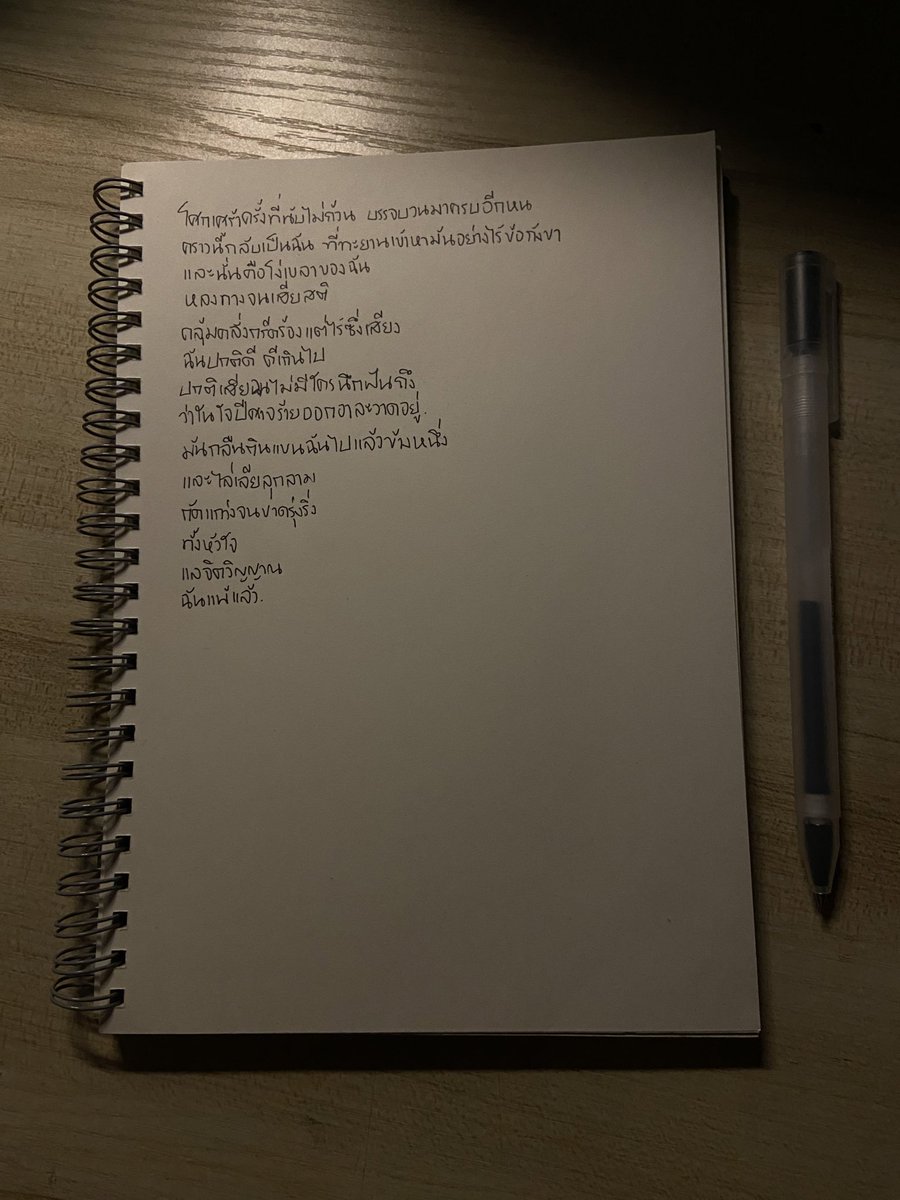 โศกเศร้าครั้งที่นับไม่ถ้วน บรรจบวนมาครบอีกหน
คราวนี้กลับเป็นฉัน ที่ทะยานเข้าหามันอย่างไร้ข้อกังขา
และนั่นคือโง่เขลาของฉัน
หลงทางจนเสียสติ
คลุ้มคลั่งกรีดร้องแต่ไร้ซึ่งเสียง
ฉันปกติดี ดีเกินไป
ปกติเสียจนไม่มีใครนึกฝันถึง
ว่าในใจปีศาจร้ายออกอาละวาดอยู่.
มันกลืนกินแขนฉันไปแล้วข้างหนึ่ง
และไล่เลียลุกลาม
กัดแทะจนขาดรุ่งริ่ง
ทั้งหัวใจ
แลจิตวิญญาณ
ฉันแพ้แล้ว.